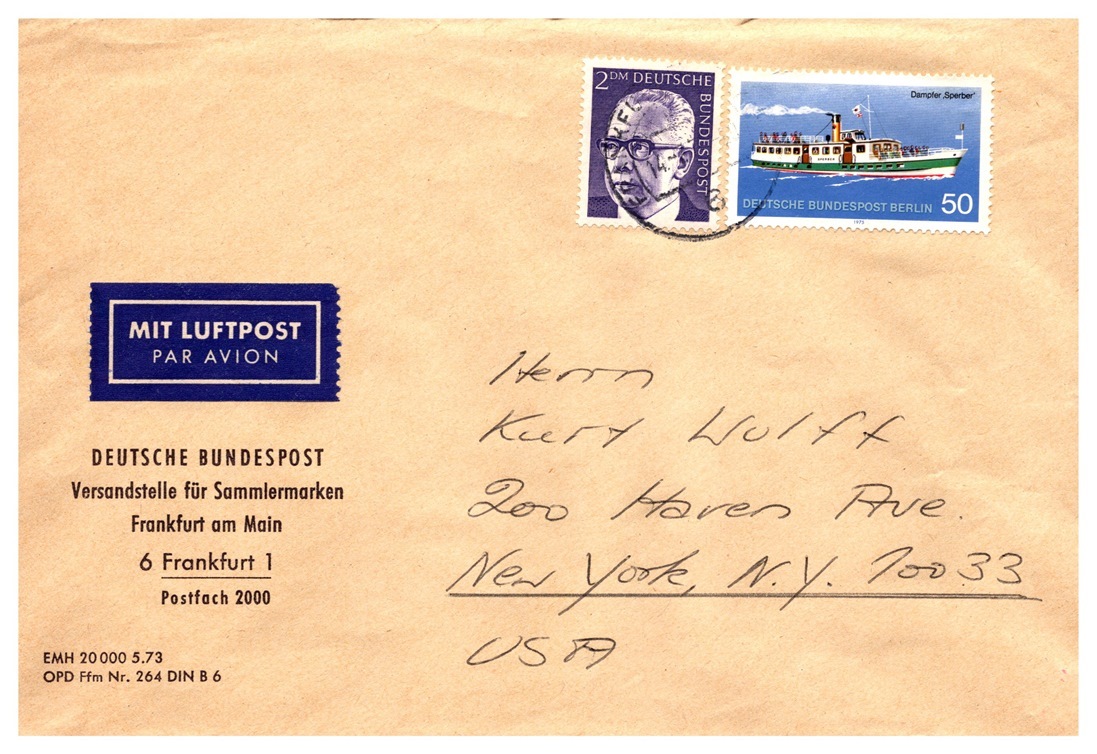 2 DM DEUTSCHE BUNDESPOST
Dampfer ‚Sperber‘
SPERBER
DEUTSCHE BUNDESPOST BERLIN 50
1975
MIT LUFTPOST
PAR AVION
DEUTSCHE BUNDESPOST
Versandstelle für Sammlermarken
Frankfurt am Main
6 Frankfurt 1
Postfach 2000
EMH 20 000 5.73
OPD Ffm Nr. 264 DIN B 6
Herrn
Kurt Wolff
200 Haven Ave.
New York, N.Y. 10033
USA